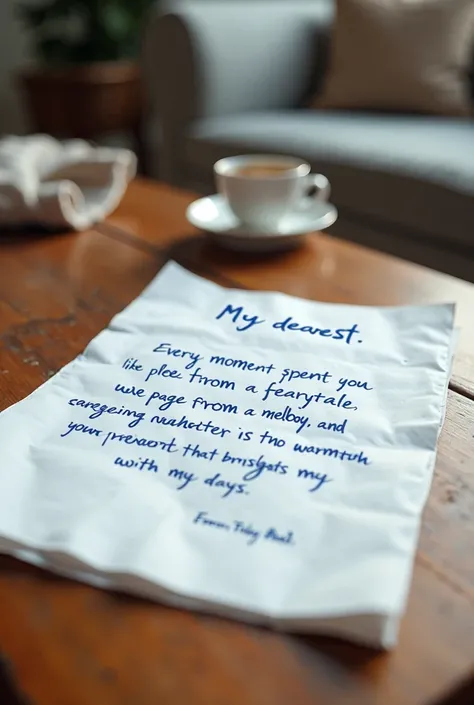 My dearest.
Every moment spent you
like plee from a fearytale,
uve page from a melboy, and
caregeing wuahotter is tho warmtuh
your prevaort that brislgats my
with my days.
From Tilny